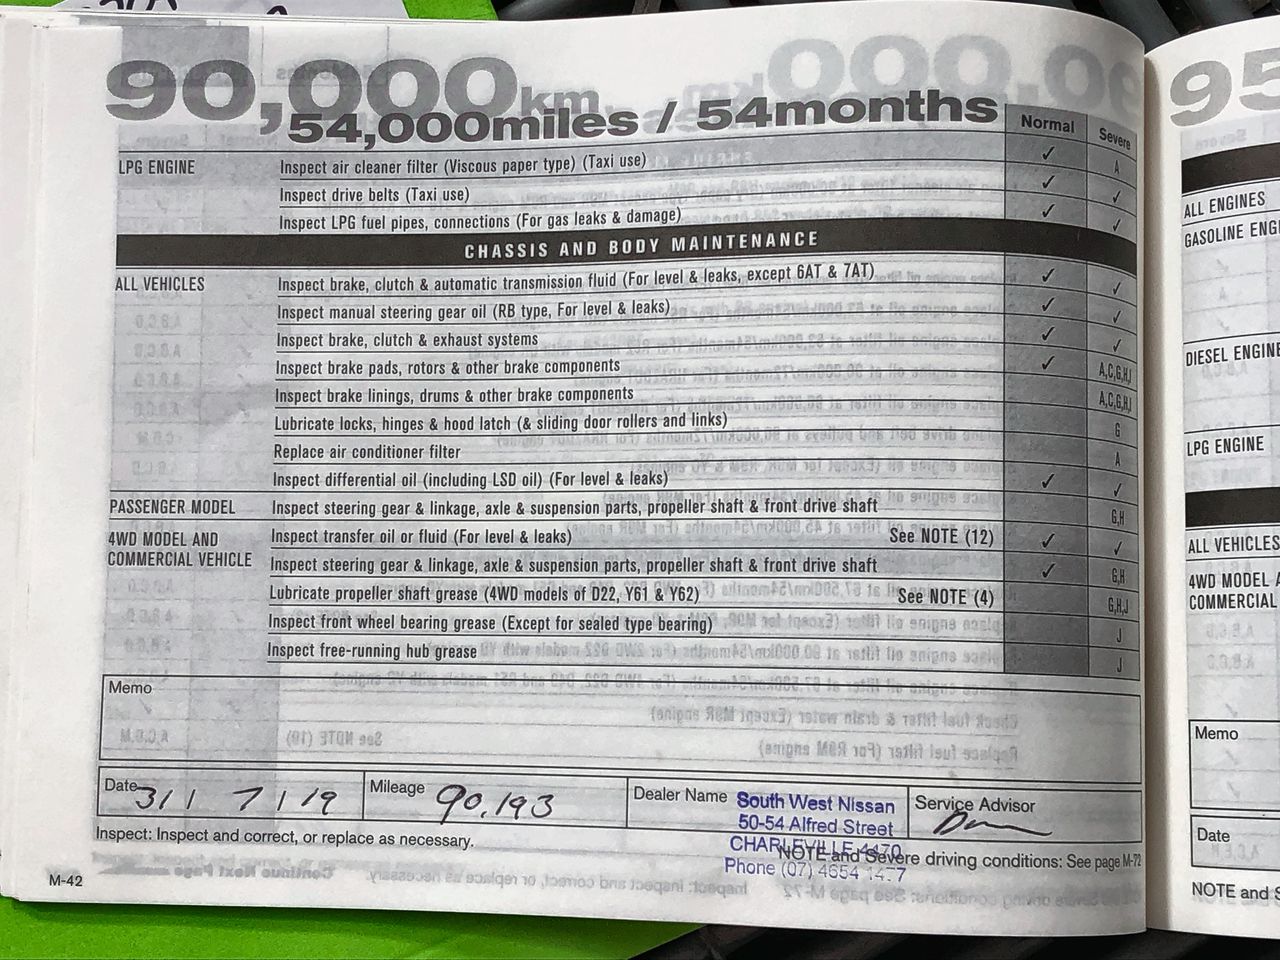 90,000km
54,000miles / 54months
Normal Severe
LPG ENGINE Inspect air cleaner filter (Viscous paper type) (Taxi use) ✓ A
Inspect drive belts (Taxi use) ✓ ✓
Inspect LPG fuel pipes, connections (For gas leaks & damage) ✓ ✓
CHASSIS AND BODY MAINTENANCE
ALL VEHICLES Inspect brake, clutch & automatic transmission fluid (For level & leaks, except 6AT & 7AT) ✓ ✓
Inspect manual steering gear oil (RB type, For level & leaks) ✓ ✓
Inspect brake, clutch & exhaust systems ✓ ✓
Inspect brake pads, rotors & other brake components ✓ A,C,G,H,J
Inspect brake linings, drums & other brake components A,C,G,H,J
Lubricate locks, hinges & hood latch (& sliding door rollers and links) G
Replace air conditioner filter A
Inspect differential oil (including LSD oil) (For level & leaks) ✓ ✓
PASSENGER MODEL Inspect steering gear & linkage, axle & suspension parts, propeller shaft & front drive shaft G,H
4WD MODEL AND Inspect transfer oil or fluid (For level & leaks) See NOTE (12) ✓ ✓
COMMERCIAL VEHICLE Inspect steering gear & linkage, axle & suspension parts, propeller shaft & front drive shaft ✓ G,H
Lubricate propeller shaft grease (4WD models of D22, Y61 & Y62) See NOTE (4) G,H,J
Inspect front wheel bearing grease (Except for sealed type bearing) J
Inspect free-running hub grease J
Memo
Date 31 / 7 / 19 Mileage 90,193 Dealer Name South West Nissan Service Advisor
50-54 Alfred Street
CHARLEVILLE 4470
Phone (07) 4654 1477
Inspect: Inspect and correct, or replace as necessary.
NOTE and Severe driving conditions: See page M-72
M-42
95
ALL ENGINES
GASOLINE
DIESEL ENGINE
LPG ENGINE
ALL VEHICLES
4WD MODEL
COMMERCIAL
Memo
Date
NOTE and